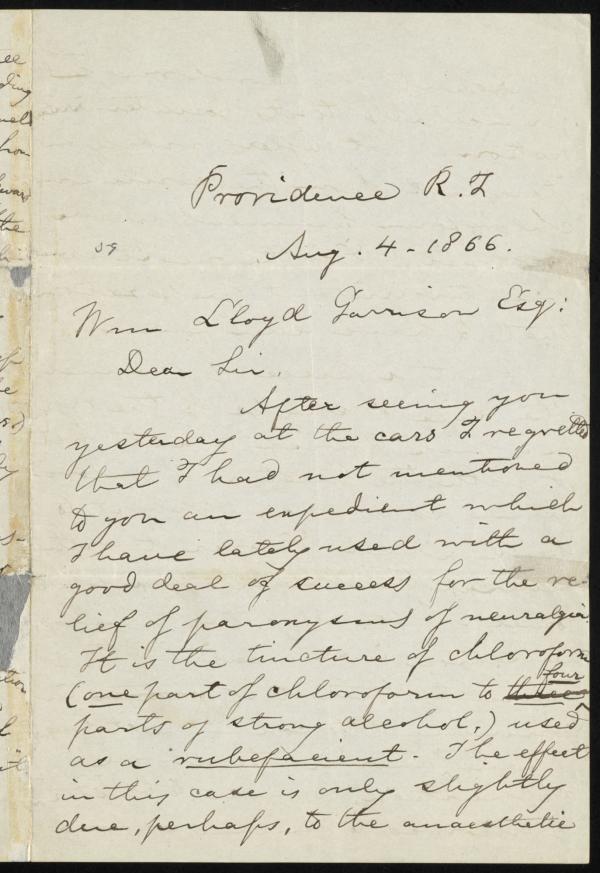 Providence R. I
Aug. 4 - 1866.
59
Wm Lloyd Garrison Esq:
Dear Sir,
After seeing you
yesterday at the cars I regretted
that I had not mentioned
to you an expedient which
I have lately used with a
good deal of success for the re-
lief of paroxysms of neuralgia.
It is the tincture of chloroform
(one part of chloroform to three four
parts of strong alcohol,) used
as a rubefacient. The effect
in this case is only slightly
due, perhaps, to the anaesthetic